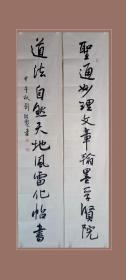 聖通妙理文章翰墨賢院
道法自然天地風雷化帖書
甲午秋劉書